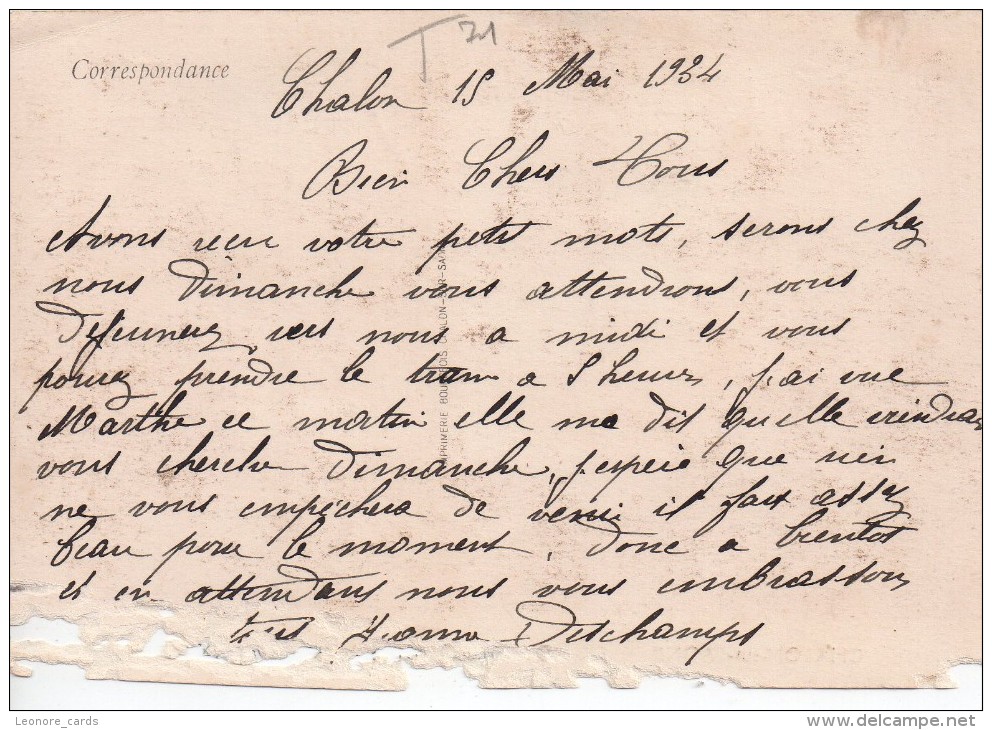 T 21
Correspondance
Chalon 15 Mai 1934
Bien Chers Tous
Avons recu votre petit mots, serons chez
nous dimanche vous attendrons, vous
Dejeunerez vers nous a midi et vous
pourez prendre le tram a 5 heures, j'ai vue
Marthe ce matin elle ma dit quelle viendrais
vous cherche dimanche, j'espere que rien
ne vous empêchera de venir il fait assez
beau pour le moment, donc a bientot
et en attendans nous vous embrassons
Deschamps
IMPRIMERIE BOURGEOIS CHALON-SUR-SAÔNE
Leonore_cards
delcampe.net